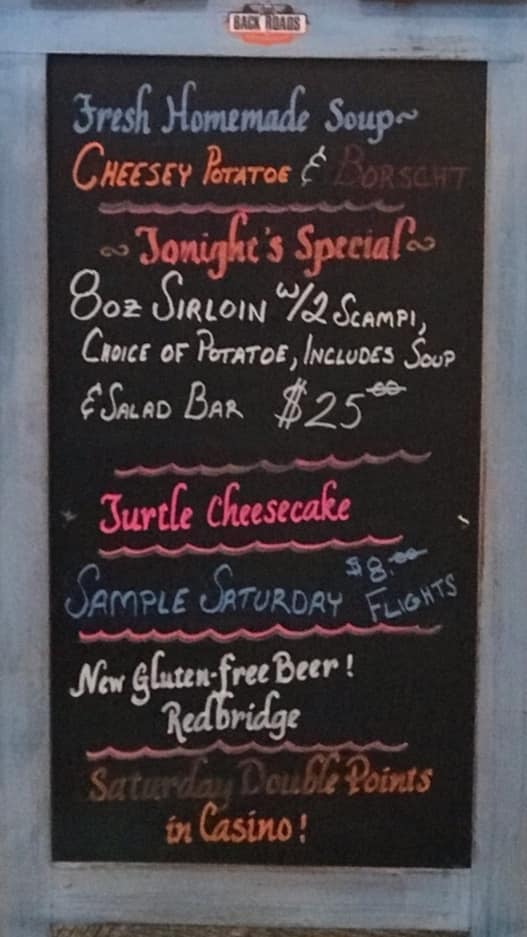 BACK ROADS
Fresh Homemade Soup~
CHEESEY POTATOE & BORSCHT
~Tonight's Special~
8oz SIRLOIN w/2 SCAMPI,
CHOICE OF POTATOE, INCLUDES SOUP
& SALAD BAR $25.00
Turtle Cheesecake
SAMPLE SATURDAY $8.00 FLIGHTS
New Gluten-free Beer!
Redbridge
Saturday Double Points
in Casino!